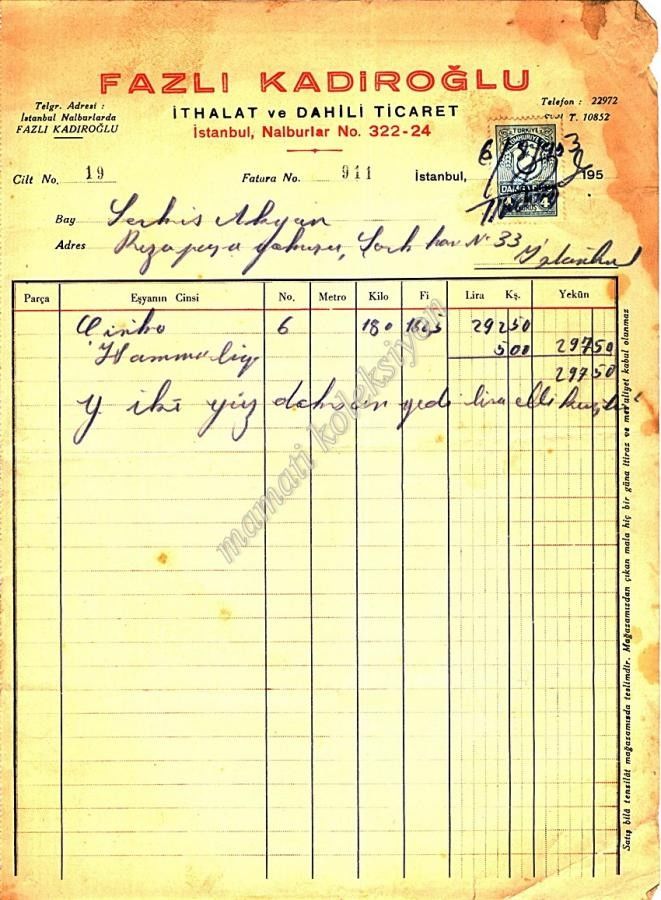 FAZLI KADİROĞLU
Telgr. Adresi :
İstanbul Nalburlarda
FAZLI KADIROĞLU
İTHALAT ve DAHİLİ TİCARET
İstanbul, Nalburlar No. 322-24
Telefon : 22972
T. 10852
Cilt No. 19
Fatura No. 911
İstanbul, 195
Bay
Adres No 33 İstanbul
Parça Eşyanın Cinsi No. Metro Kilo Fi Lira Kş. Yekûn
Çinko 6 180 29250
Hammaliye 500 29750
29750
Y. iki yüz doksan yedi lira elli kuruştur
Satış bilâ tenzilât mağazamızda teslimdir. Mağazamızdan çıkan mala hiç bir güna itiraz ve mes'uliyet kabul olunmaz
mamati koleksiyon